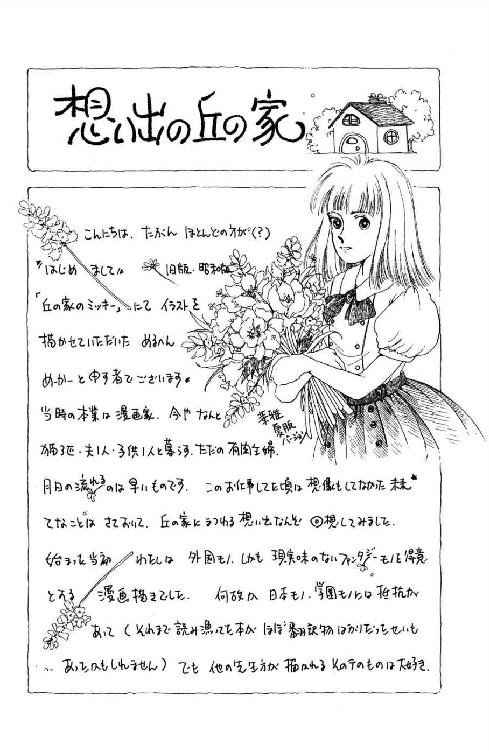 想い出の丘の家
こんにちは、たぶん ほとんどの方が(?)
"はじめ まして" 旧版・昭和版
「丘の家のミッキー」にて イラストを
描かせていただいた めるへん
めーかーと申す者でございます。
当時の本業は漫画家、今や なんと
猫3匹・夫1人・子供1人と暮らす、ただの有閑主婦。
復版
月日の流れるのは早いものです。 このお仕事してた頃は 想像もしてなかった 未来
てなことは さておいて、丘の家にまつわる 想い出なんぞ 回想してみました。
始まった当初 わたしは 外国もの、しかも 現実味のないファンタジーものを得意
とする 漫画描きでした。 何故か 日本もの、学園ものには 抵抗が
あって(それまで 読み漁ってた本が ほぼ翻訳物ばかりだったせいも
… あったかもしれません) でも 他の先生方が 描かれる その手のものは大好き、